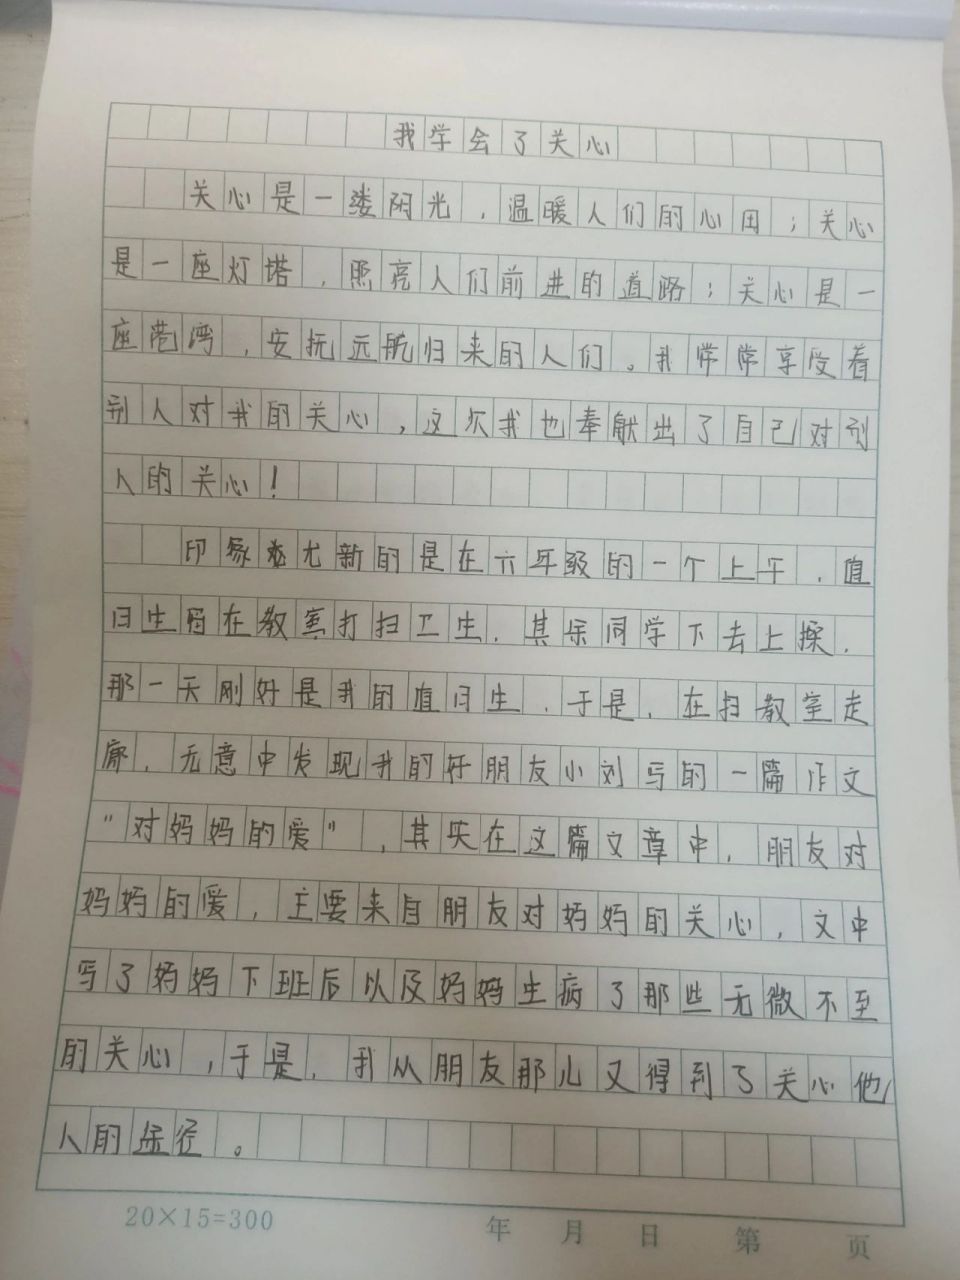 我学会了关心
关心是一缕阳光，温暖人们的心田；关心
是一座灯塔，照亮人们前进的道路；关心是一
座港湾，安抚远航归来的人们。我常常享受着
别人对我的关心，这次我也奉献出了自己对别
人的关心！
印象尤新的是在六年级的一个上午，值
日生留在教室打扫卫生，其余同学下去上操，
那一天刚好是我的值日生，于是，在扫教室走
廊，无意中发现我的好朋友小刘写的一篇作文
“对妈妈的爱”，其实在这篇文章中，朋友对
妈妈的爱，主要来自朋友对妈妈的关心，文中
写了妈妈下班后以及妈妈生病了那些无微不至
的关心，于是，我从朋友那儿又得到了关心他
人的途径。
20×15=300
年 月 日 第 页